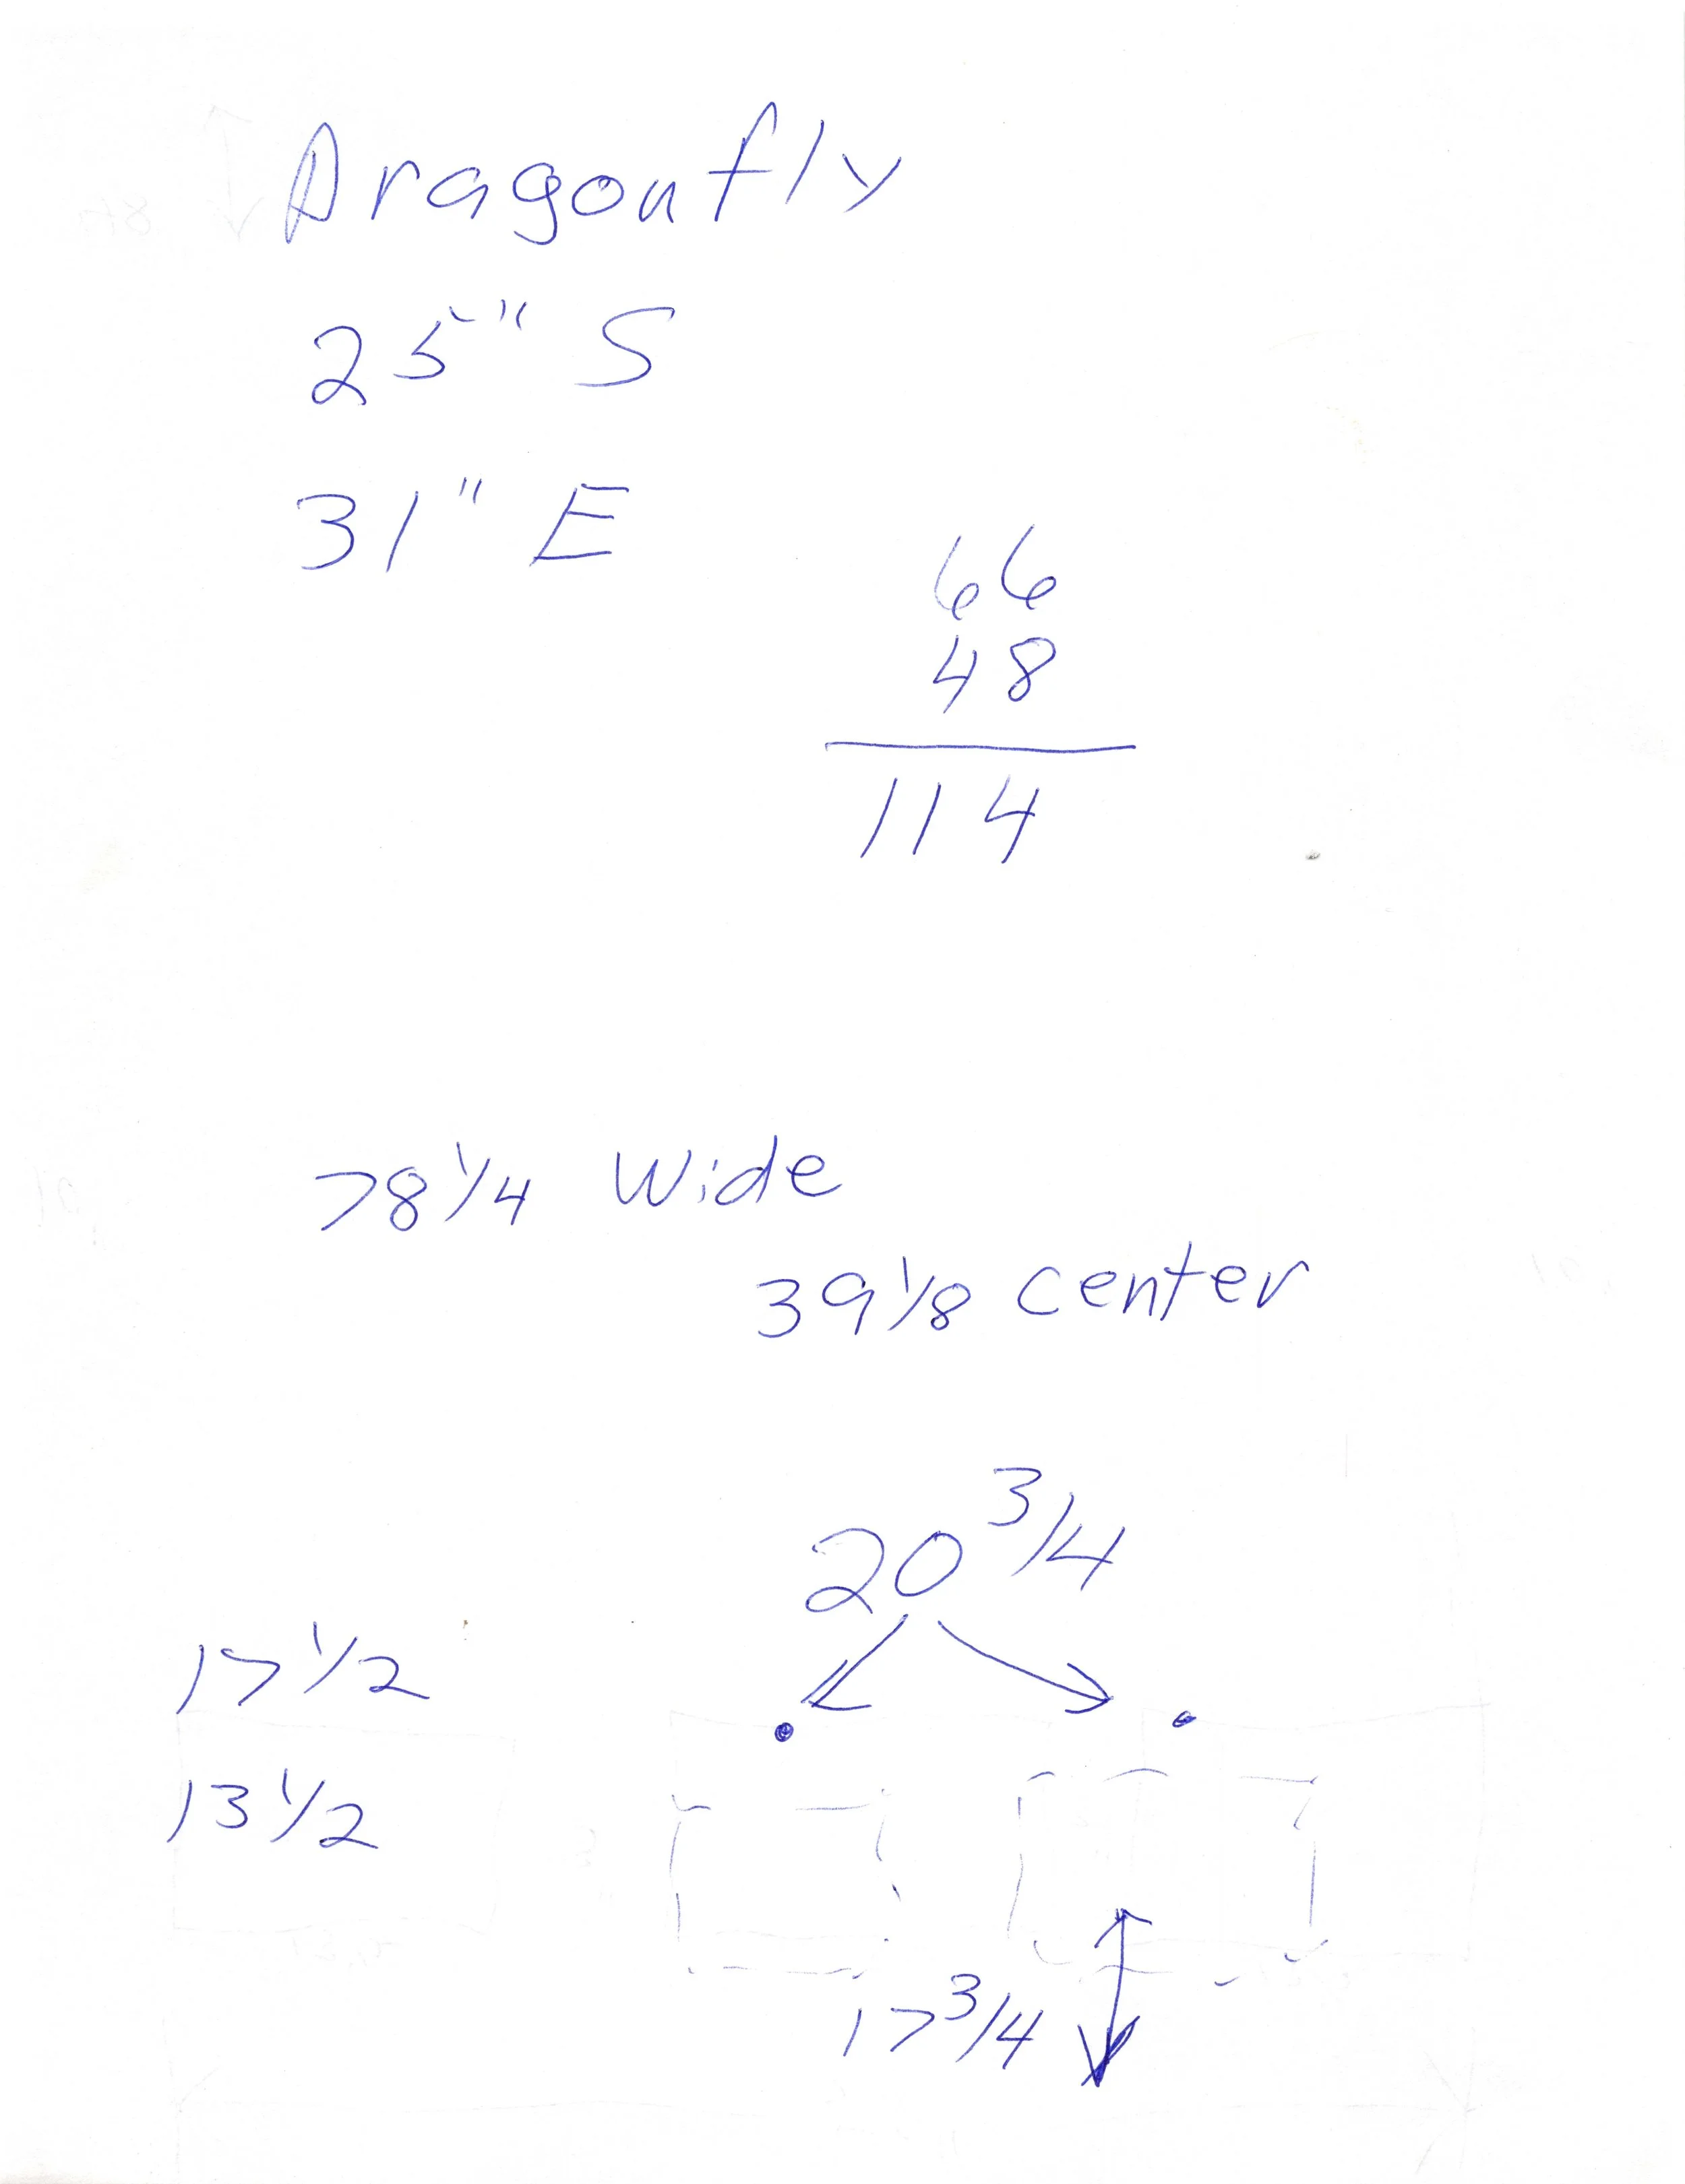 Dragonfly
25" S
31" E
66
48
114
78 1/4 Wide
39 1/8 center
20 3/4
17 1/2
13 1/2
17 3/4